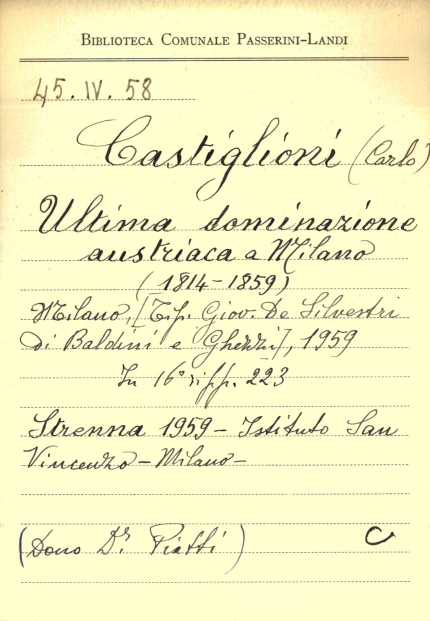 BIBLIOTECA COMUNALE PASSERINI-LANDI
45. IV. 58
Castiglioni (Carlo)
Ultima dominazione
austriaca a Milano
(1814-1859)
Milano, [Tip. Giov. De Silvestri
di Baldini e Ghezzi], 1959
In 16° pp. 223
Strenna 1959 - Istituto San
Vincenzo - Milano -
(Dono Dr. Piatti) C